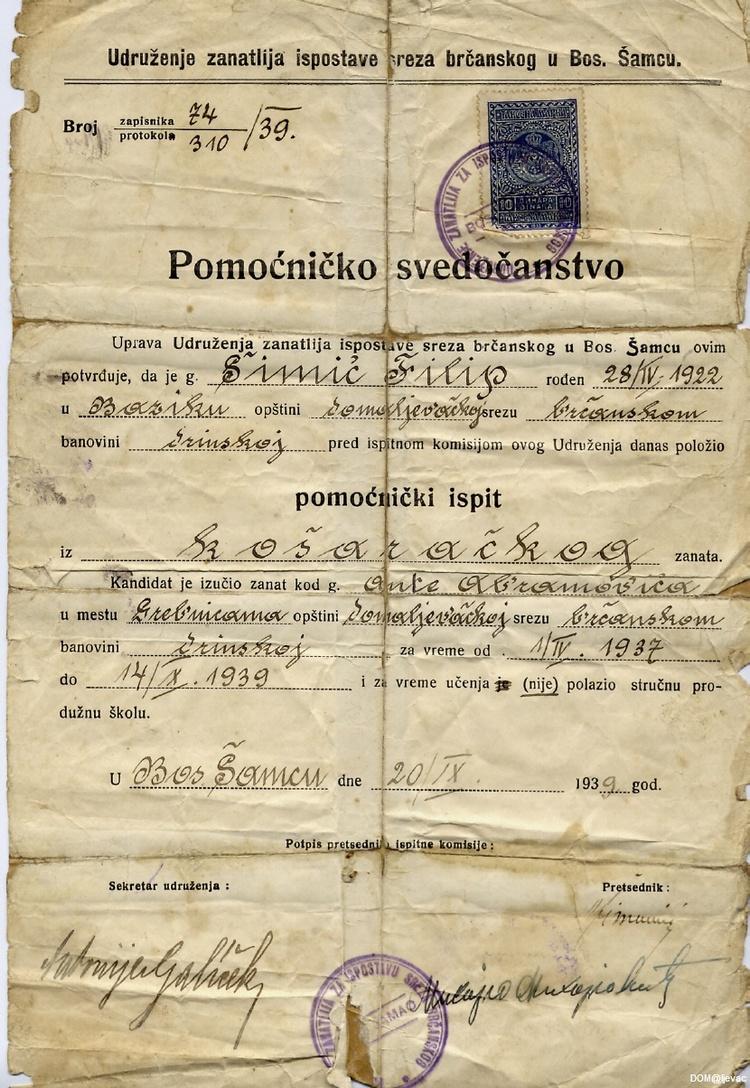 Udruženje zanatlija ispostave sreza brčanskog u Bos. Šamcu.
Broj zapisnika 74
protokola 310 /39.
10 ДИНАРА DINARA 10
Pomoćničko svedočanstvo
Uprava Udruženja zanatlija ispostave sreza brčanskog u Bos. Šamcu ovim
potvrđuje, da je g. Šimić Filip rođen 28/IV. 1922
u Baziku opštini domaljevačkoj srezu brčanskom
banovini drinskoj pred ispitnom komisijom ovog Udruženja danas položio
pomoćnički ispit
iz košaračkog zanata.
Kandidat je izučio zanat kod g. Ante Abramovića
u mestu Grebnicama opštini domaljevačkoj srezu brčanskom
banovini drinskoj za vreme od 1/IV. 1937
do 14/X. 1939 i za vreme učenja je (nije) polazio stručnu pro-
dužnu školu.
U Bos Šamcu dne 20/IX. 1939 god.
Potpis pretsednika ispitne komisije:
Sekretar udruženja: Pretsednik:
ZANATLIJA ZA ISPOSTAVU SREZA BRČANSKOG
ŠAMAC
DOM@ljevac